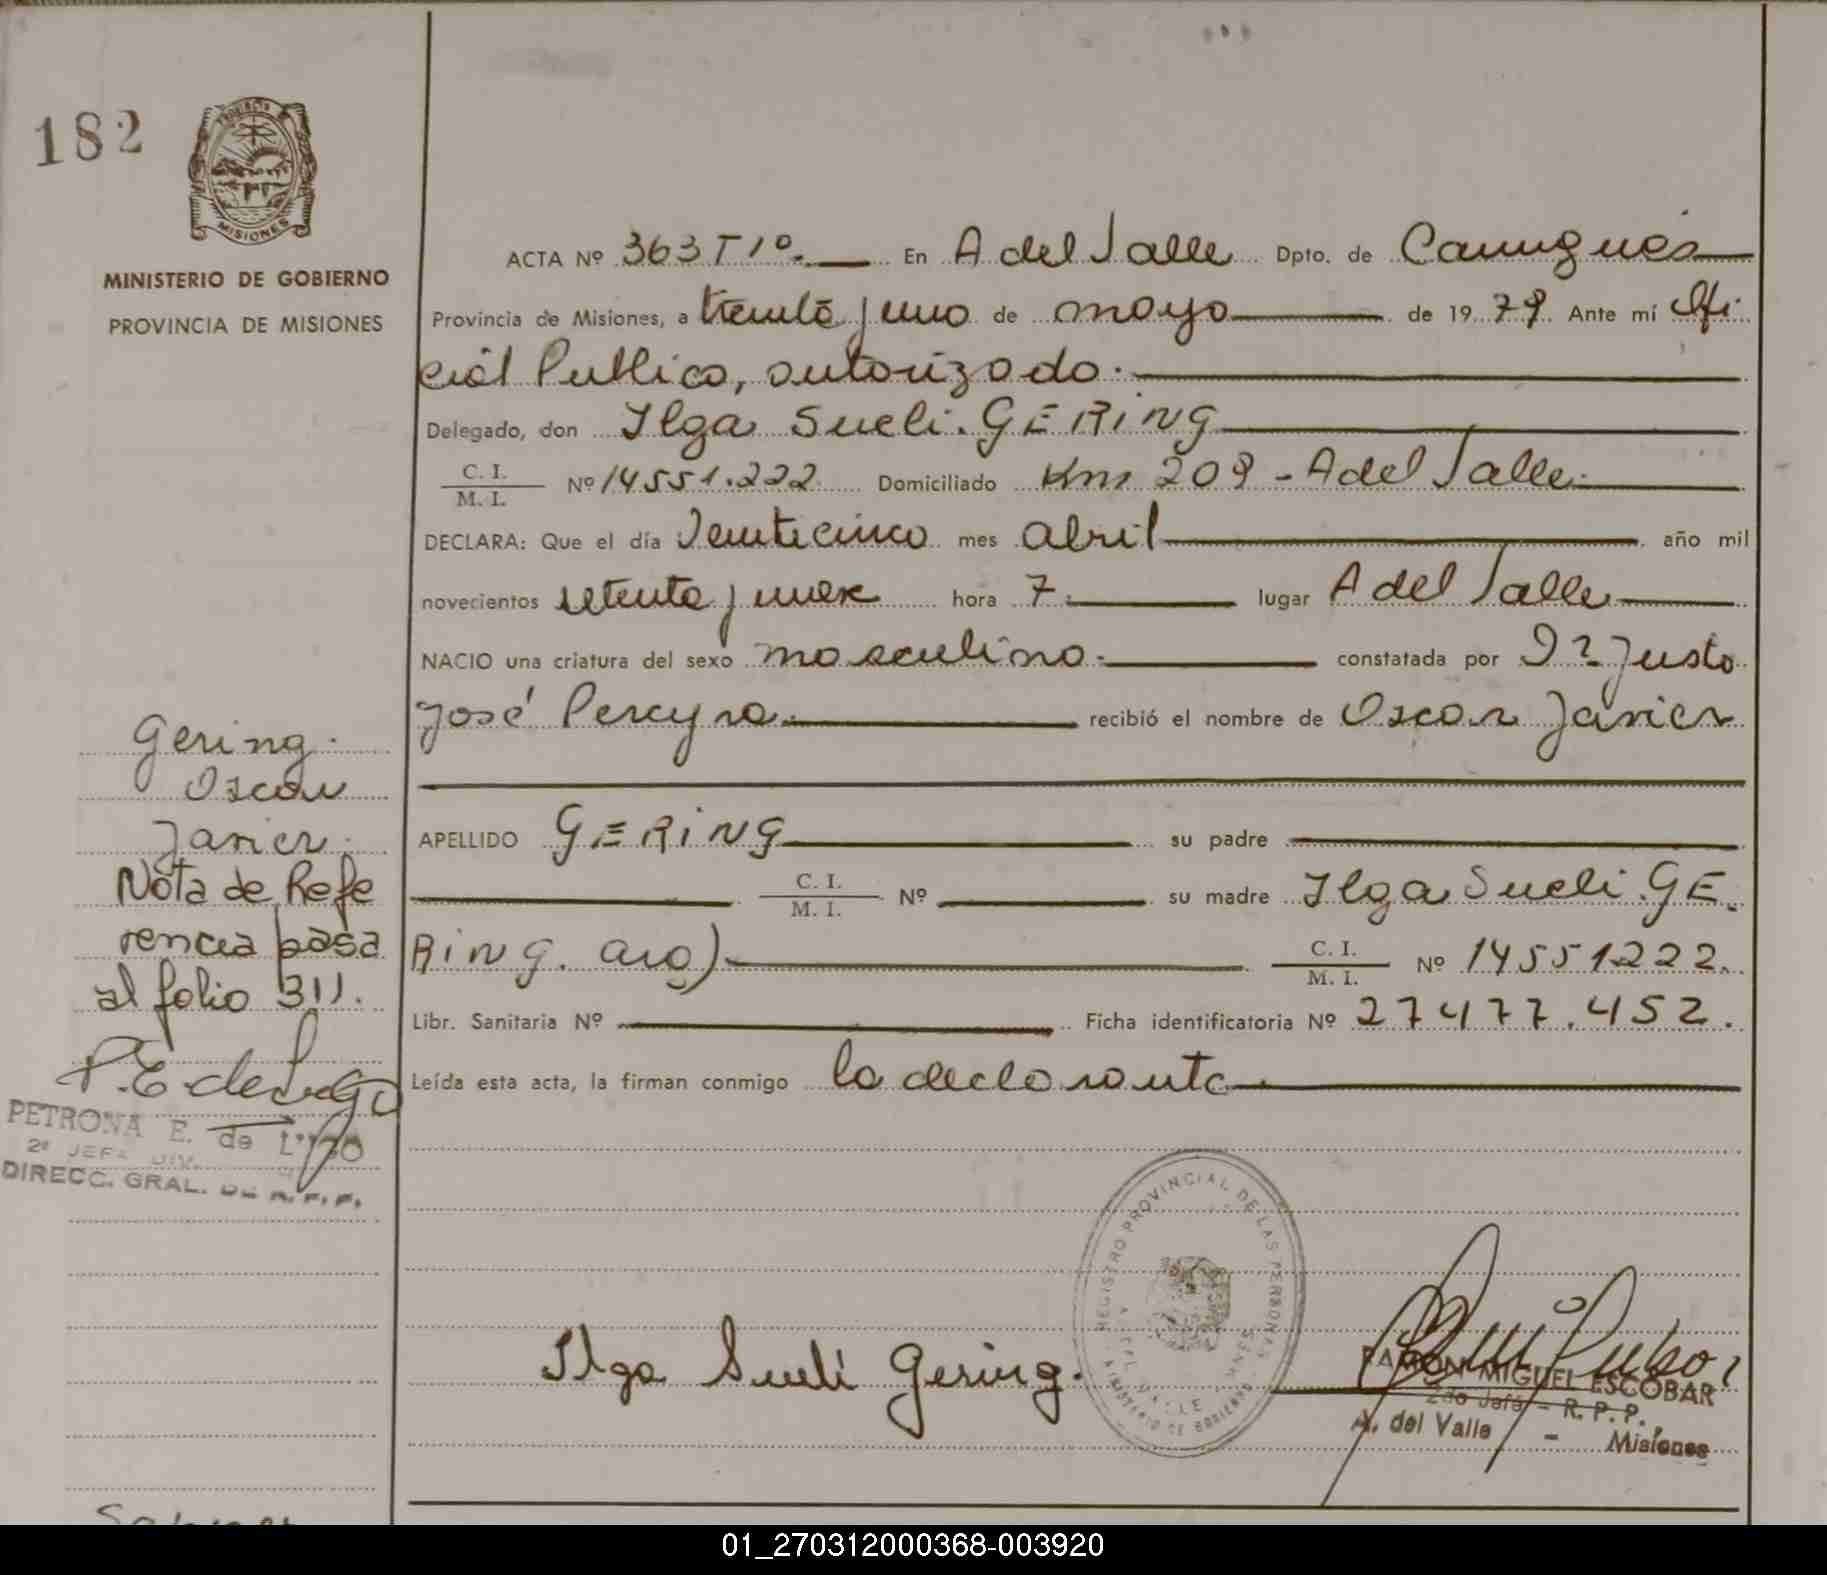 182
PROVINCIA
MISIONES
MINISTERIO DE GOBIERNO
PROVINCIA DE MISIONES
ACTA Nº 363 T 1º. En A del Valle Dpto. de Cainguás
Provincia de Misiones, a treinta y uno de mayo de 19 79 Ante mí Ofi
cial Publico, autorizado.
Delegado, don Ilga Sueli. GERING
C. I.
M. I. Nº 14551.222 Domiciliado Km 209 - A del Valle.
DECLARA: Que el día Veinticinco mes abril año mil
novecientos setenta y nueve hora 7. lugar A del Valle
NACIO una criatura del sexo masculino. constatada por Dr Justo
José Pereyra. recibió el nombre de Oscar Javier
APELLIDO GERING su padre
C. I.
M. I. Nº su madre Ilga Sueli. GE
RING. arg) C. I.
M. I. Nº 14551222.
Libr. Sanitaria Nº Ficha identificatoria Nº 27477.452.
Leída esta acta, la firman conmigo la declarante.
Gering.
Oscar
Javier.
Nota de Refe
rencia pasa
al folio 311.
P. E. de Lugo
PETRONA E. de LUGO
2º JEFA DIV.
DIRECC. GRAL. DE R. P. P.
REGISTRO PROVINCIAL DE LAS PERSONAS
MINISTERIO DE GOBIERNO
Ilga Sueli Gering.
RAMON MIGUEL ESCOBAR
2do Jefe - R. P. P.
A. del Valle - Misiones
01_270312000368-003920